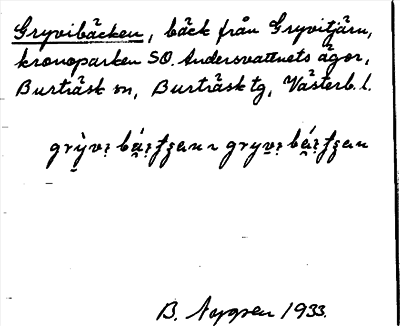 Gryvibäcken, bäck från Gryvitjärn,
kronoparken SO. Andersvattnets ägor,
Burträsk sn, Burträsk tg, Västerb. l.
B. Nygren 1933.